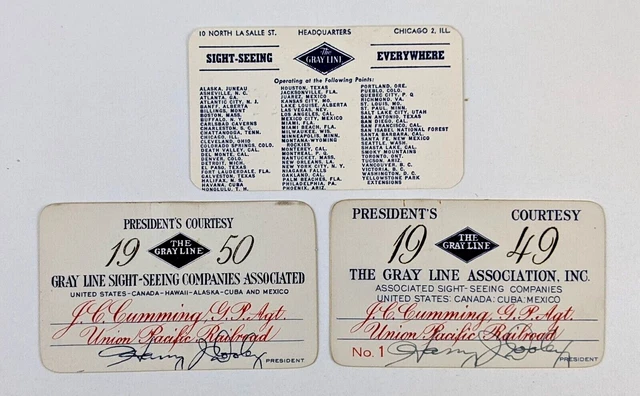 10 NORTH LA SALLE ST. HEADQUARTERS CHICAGO 2, ILL.
SIGHT-SEEING The GRAY LINE EVERYWHERE
Operating at the Following Points:
ALASKA, JUNEAU
ASHEVILLE, N. C.
ATLANTA, GA.
ATLANTIC CITY, N. J.
BANFF, ALBERTA
BILLINGS, MONT
BOSTON, MASS.
BUFFALO, N. Y.
CARLSBAD CAVERNS
CHARLESTON, S. C.
CHATTANOOGA, TENN.
CHICAGO, ILL.
CLEVELAND, OHIO
COLORADO SPRINGS, COLO.
DEATH VALLEY, CAL.
DEL MONTE, CAL.
DENVER, COLO.
DETROIT, MICH.
EL PASO, TEXAS
FORT LAUDERDALE, FLA.
GALVESTON, TEXAS
HALIFAX, N. S.
HAVANA, CUBA
HONOLULU, T. H.
HOUSTON, TEXAS
JACKSONVILLE, FLA.
JUAREZ, MEXICO
KANSAS CITY, MO.
LAKE LOUISE, ALBERTA
LAS VEGAS, NEV.
LOS ANGELES, CAL.
MEXICO CITY, MEXICO
MIAMI, FLA.
MIAMI BEACH, FLA.
MILWAUKEE, WIS.
MINNEAPOLIS, MINN.
MONTANA-WYOMING
ROCKIES
MONTEREY, CAL.
MONTREAL, P. Q.
NANTUCKET, MASS.
NEW ORLEANS, LA.
NEW YORK CITY, N. Y.
NIAGARA FALLS
OAKLAND, CAL.
PALM BEACHES, FLA.
PHILADELPHIA, PA.
PHOENIX, ARIZ.
PORTLAND, ORE.
PUEBLO, COLO.
QUEBEC CITY, P. Q.
RICHMOND, VA.
ST. LOUIS, MO.
ST. PAUL, MINN.
SALT LAKE CITY, UTAH
SAN ANTONIO, TEXAS
SAN DIEGO, CAL.
SAN FRANCISCO, CAL.
SAN ISABEL NATIONAL FOREST
SANTA BARBARA, CAL.
SANTA FE, NEW MEXICO
SEATTLE, WASH.
SHASTA LAKE, CAL.
SMOKY MOUNTAINS
TORONTO, ONT.
TUCSON, ARIZ.
VANCOUVER, B. C.
VICTORIA, B. C.
WASHINGTON, D. C.
YELLOWSTONE PARK
EXTENSIONS
PRESIDENT'S COURTESY
19 THE GRAY LINE 50
GRAY LINE SIGHT-SEEING COMPANIES ASSOCIATED
UNITED STATES-CANADA-HAWAII-ALASKA-CUBA AND MEXICO
J.C. Cumming, G.P. Agt.
Union Pacific Railroad
PRESIDENT
PRESIDENT'S COURTESY
19 THE GRAY LINE 49
THE GRAY LINE ASSOCIATION, INC.
ASSOCIATED SIGHT-SEEING COMPANIES
UNITED STATES: CANADA: CUBA: MEXICO
J.C. Cumming, G.P. Agt.
Union Pacific Railroad
No. 1
PRESIDENT